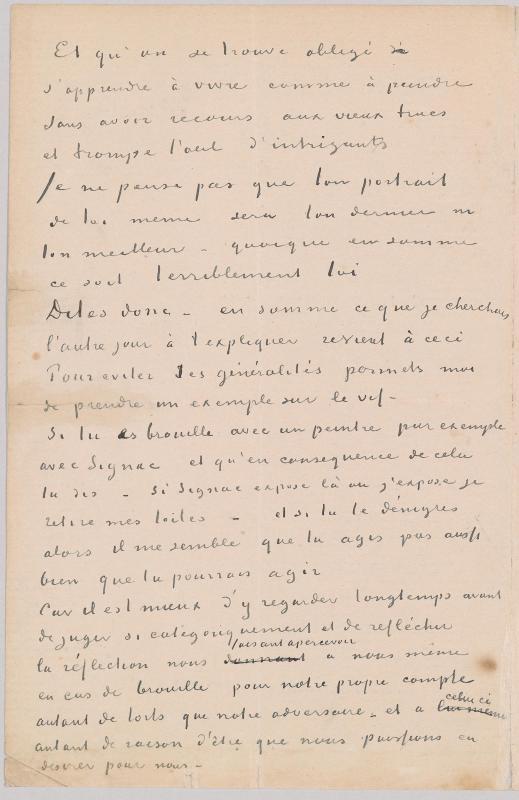 Et qu'on se trouve obligé de
s'apprendre à vivre comme à peindre
sans avoir recours aux vieux trucs
et trompe l'œil d'intrigants
Je ne pense pas que ton portrait
de toi même sera ton dernier ni
ton meilleur – quoique en somme
ce soit terriblement toi
Dites donc – en somme ce que je cherchais
l'autre jour à t'expliquer revient à ceci
Pour eviter les généralités permets moi
de prendre un exemple sur le vif –
Si tu es brouillé avec un peintre par exemple
avec Signac et qu'en consequence de cela
tu dis – si Signac expose là où j'expose je
retire mes toiles – et si tu le dénigres
alors il me semble que tu agis pas aussi
bien que tu pourrais agir
Car il est mieux d'y regarder longtemps avant
de juger si categoriquement et de reflechir
faisant apercevoir
la réflection nous donnant a nous même
en cas de brouille pour notre propre compte
celui ci
autant de torts que notre adversaire – et a lui même
autant de raison d'être que nous puissions en
desirer pour nous –